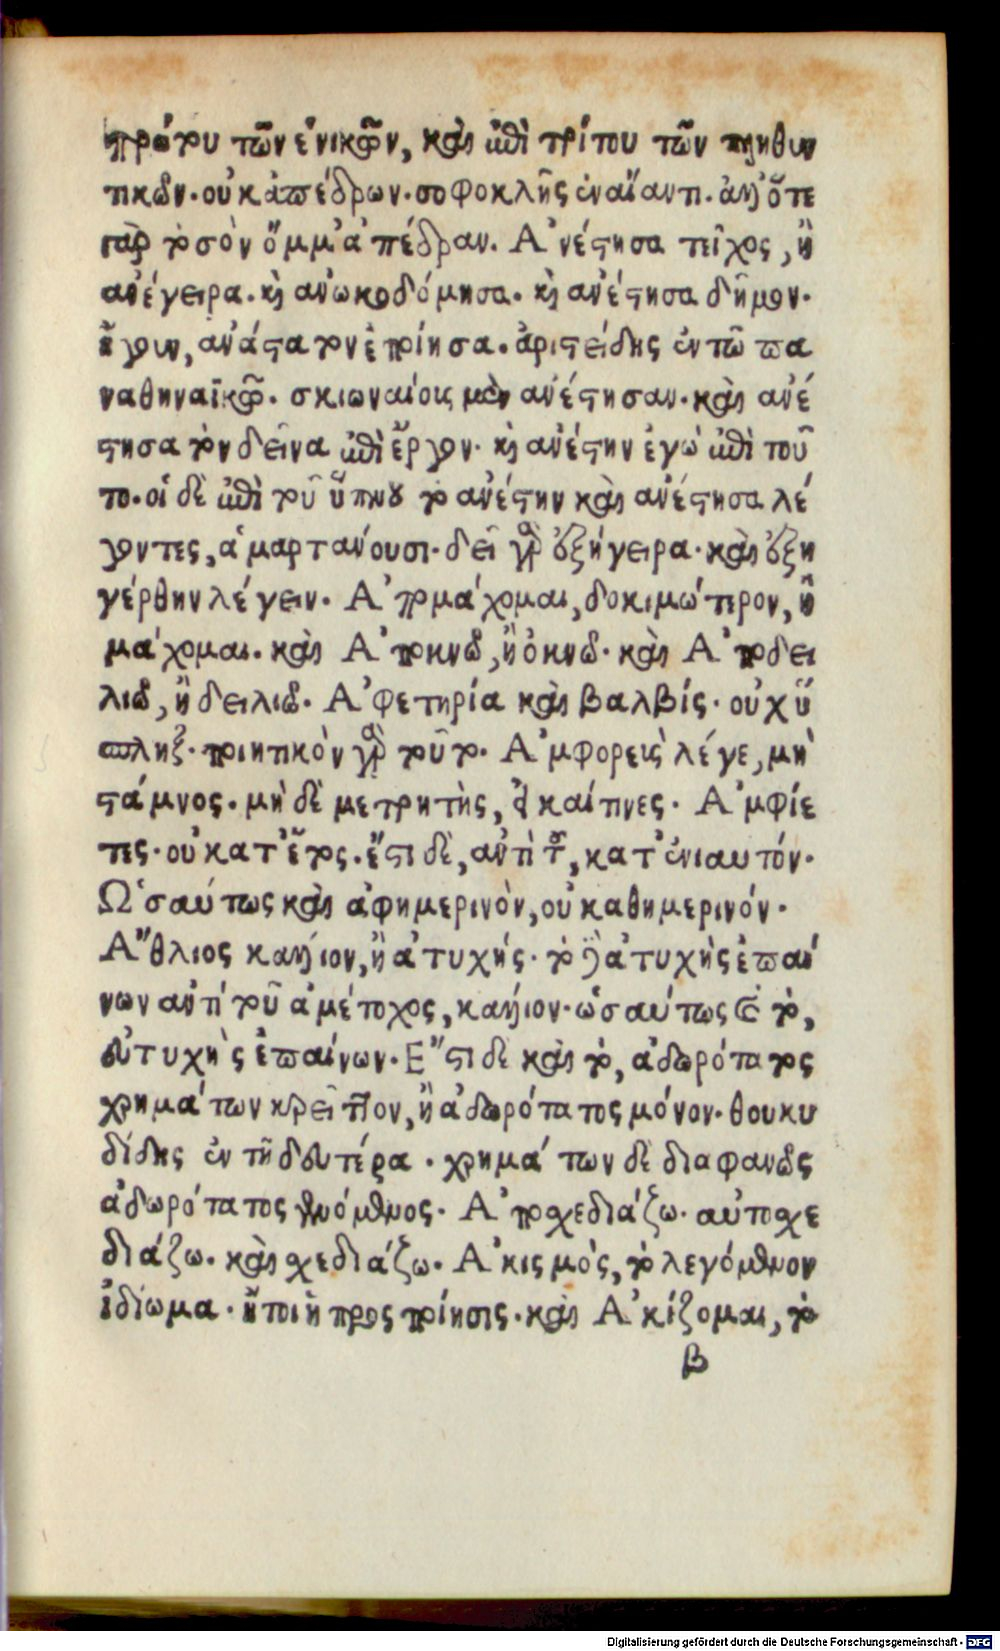 πρώτου τῶν ἑνικῶν, καὶ ἐπὶ τρίτου τῶν πληθυν
τικῶν· οὐκ ἀπέδρων· σοφοκλῆς ἐν αἴαντι· ἀλλ' ὅτε
γὰρ τὸ σὸν ὄμμ' ἀπέδραν. Ἀνέστησα τεῖχος, ἢ
ἀνέγειρα· καὶ ἀνῳκοδόμησα· καὶ ἀνέστησα δῆμον·
ἤγουν, ἀνάστατον ἐποίησα· ἀριστείδης ἐν τῷ πα
ναθηναϊκῷ· σκιωναίοις μὲν ἀνέστησαν· καὶ ἀνέ
στησα τὸν δεῖνα ἐπὶ ἔργον· καὶ ἀνέστην ἐγὼ ἐπὶ τοῦ
το· οἱ δὲ ἐπὶ τοῦ ὕπνου τὸ ἀνέστην καὶ ἀνέστησα λέ
γοντες, ἁμαρτάνουσι· δεῖ γὰρ ἐξήγειρα· καὶ ἐξη
γέρθην λέγειν· Ἀπομάχομαι, δοκιμώτερον, ἢ
μάχομαι· καὶ Ἀποκνῶ, ἢ ὀκνῶ· καὶ Ἀποδει
λιῶ, ἢ δειλιῶ· Ἀφετηρία καὶ βαλβίς· οὐχ ὕ
σπληξ· ποιητικὸν γὰρ τοῦτο· Ἀμφορεῖς λέγε, μὴ
στάμνος· μὴ δὲ μετρητὴς, εἰ καί τινες· Ἀμφίε
τες· οὐ κατ' ἔτος· ἔστι δὲ, ἀντὶ τοῦ, κατ' ἐνιαυτόν·
Ὡσαύτως καὶ ἀφημερινὸν, οὐ καθημερινόν·
Ἄθλιος κάλλιον, ἢ ἀτυχής· τὸ γὰρ ἀτυχὴς ἐπαί
νων ἀντὶ τοῦ ἀμέτοχος, κάλλιον· ὡσαύτως καὶ τὸ,
εὐτυχὴς ἐπαίνων· Ἔστι δὲ καὶ τὸ, ἀδωρότατος
χρημάτων κρεῖττον, ἢ ἀδωρότατος μόνον· θουκυ
δίδης ἐν τῇ δευτέρα· χρημάτων δὲ διαφανῶς
ἀδωρότατος γενόμενος· Ἀποσχεδιάζω· αὐτοσχε
διάζω· καὶ σχεδιάζω· Ἀκισμὸς, τὸ λεγόμενον
ἰδίωμα· ἤτοι ἡ προσποίησις· καὶ Ἀκίζομαι, τὸ
β
Digitalisierung gefördert durch die Deutsche Forschungsgemeinschaft - DFG